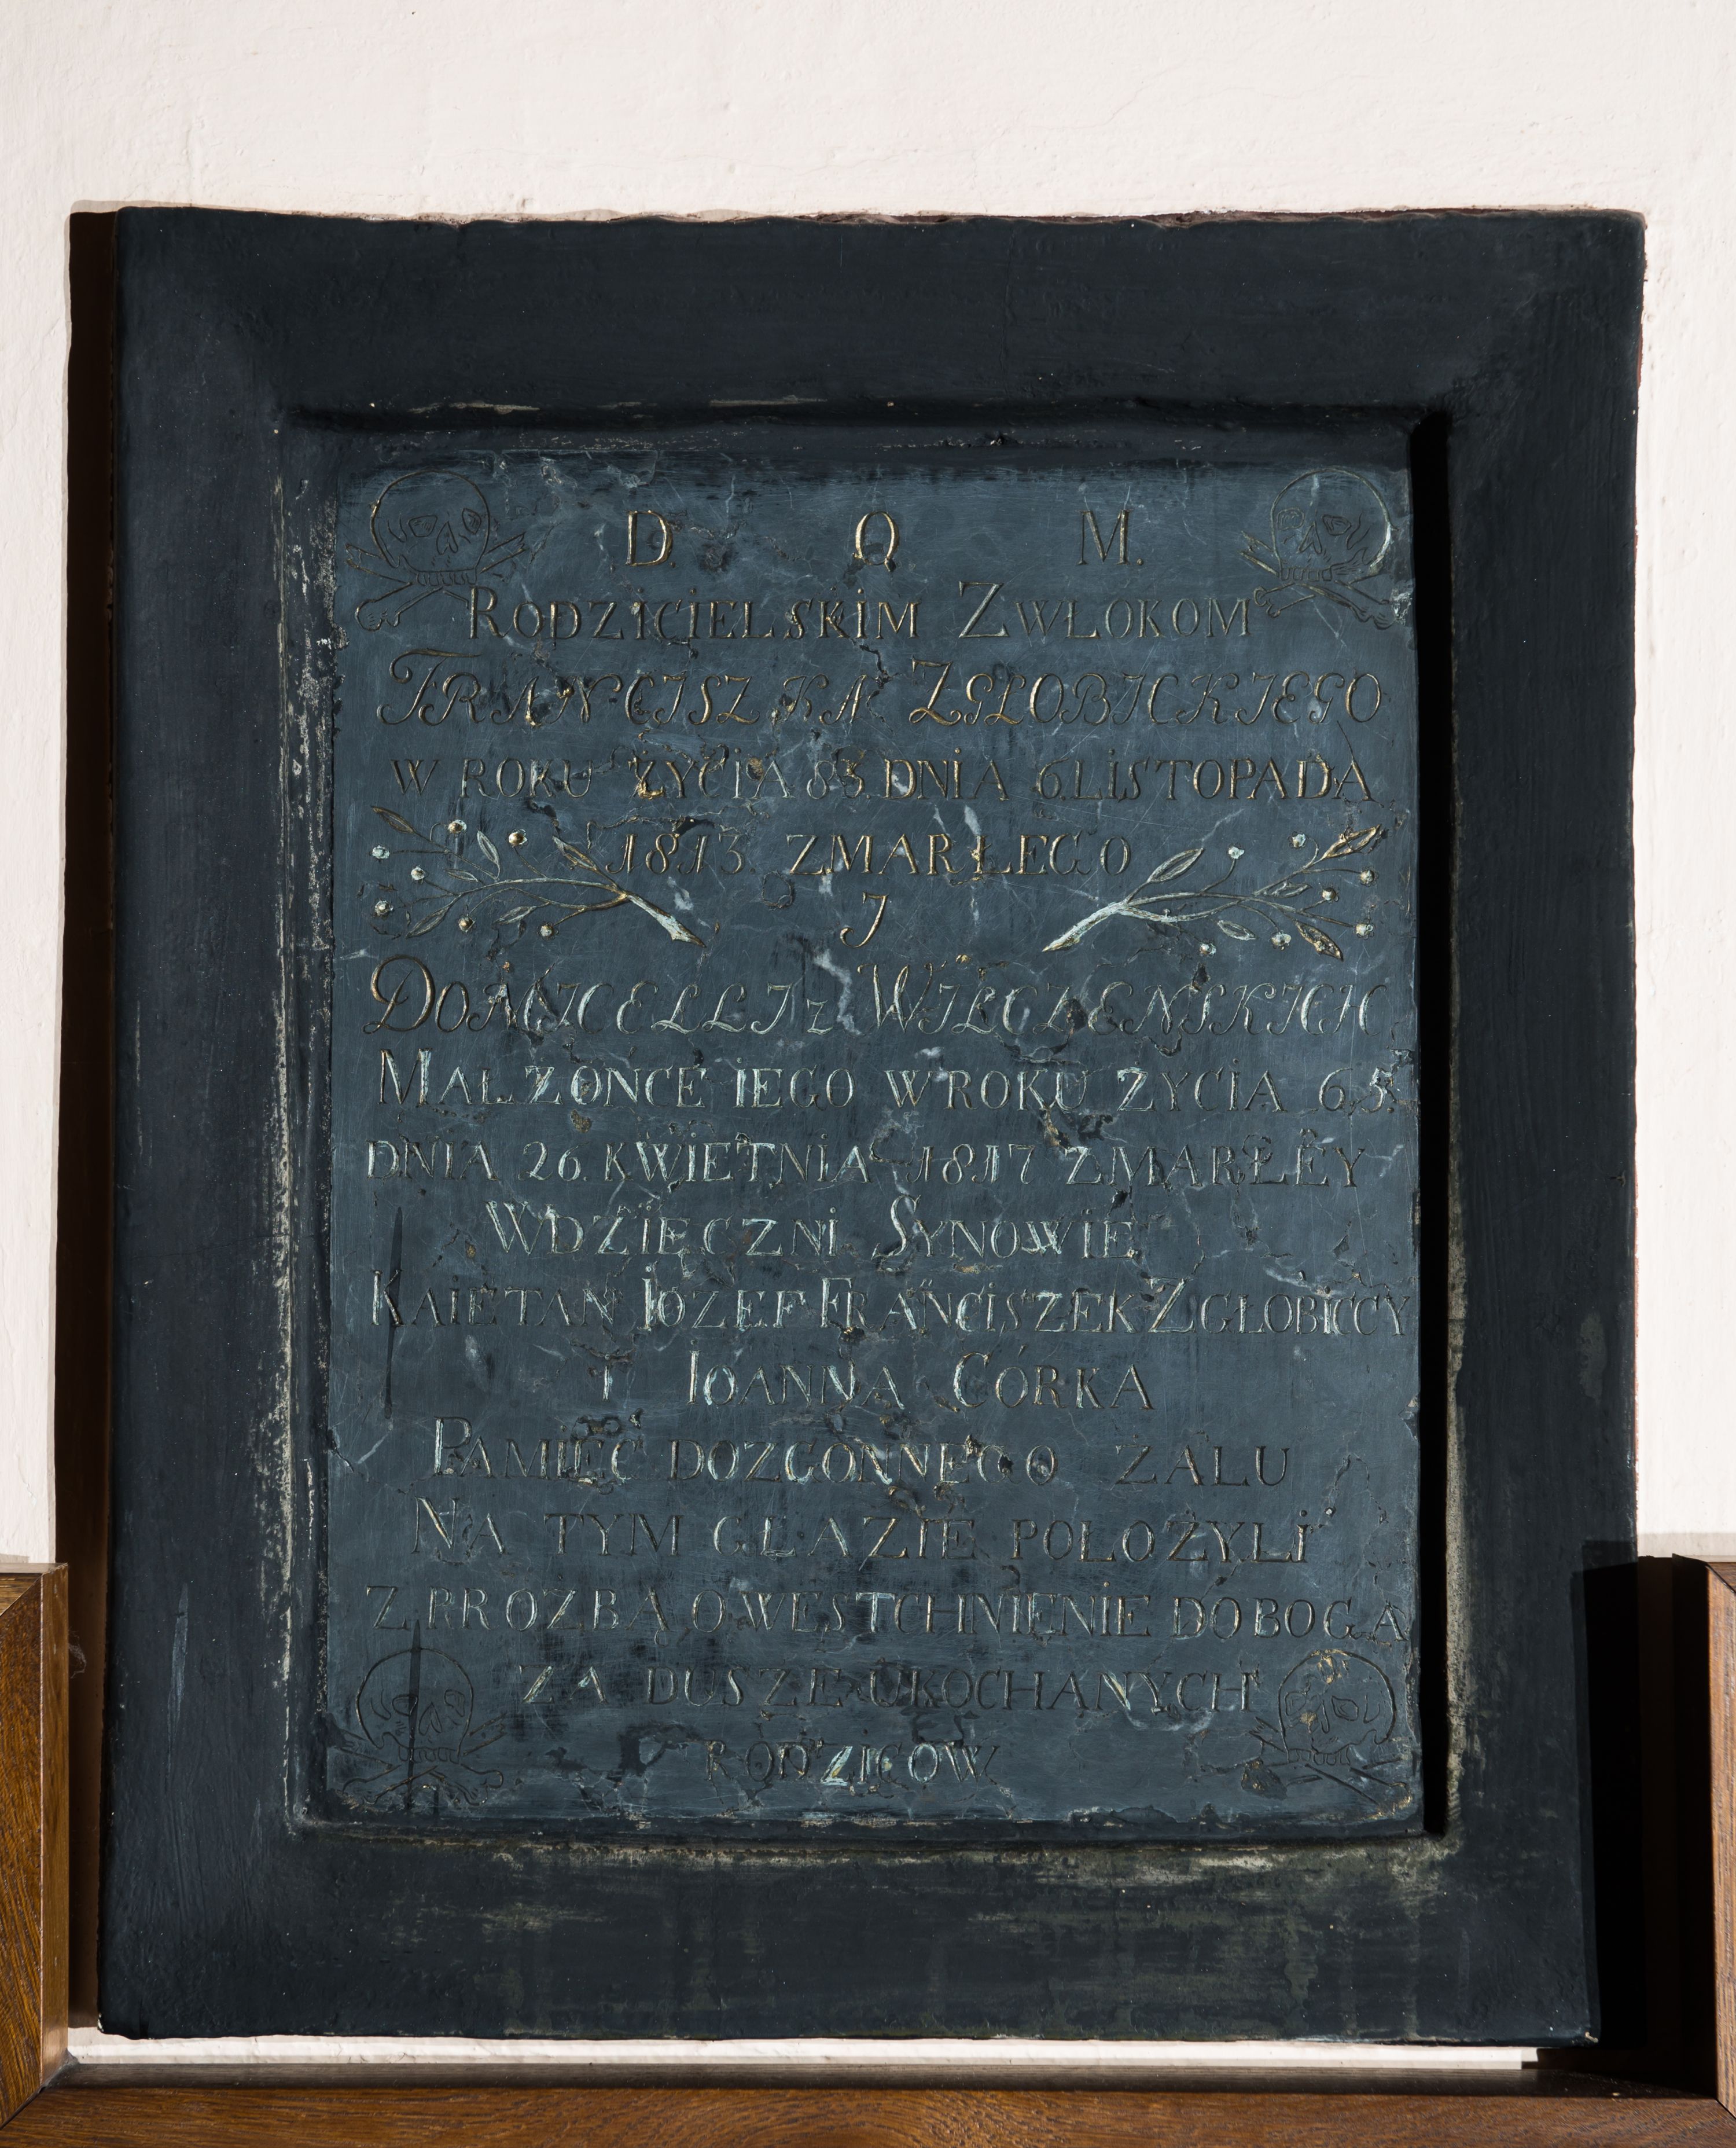 D. O. M.
RODZICIELSKIM ZWŁOKOM
FRANCISZKA ZGŁOBICKIEGO
W ROKU ŻYCIA 83. DNIA 6. LISTOPADA
1813. ZMARŁEGO
J
DOMICELLI z WILCZEŃSKICH
MAŁŻONCE IEGO W ROKU ŻYCIA 65.
DNIA 26. KWIETNIA 1817 ZMARŁEY
WDZIĘCZNI SYNOWIE
KAIETAN IÓZEF FRANCISZEK ZGŁOBICCY
I IOANNA CÓRKA
PAMIĘĆ DOZGONNEGO ŻALU
NA TYM GŁAZIE POŁOŻYLI
Z PROŹBĄ O WESTCHNIENIE DO BOGA
ZA DUSZE UKOCHANYCH
RODZICÓW